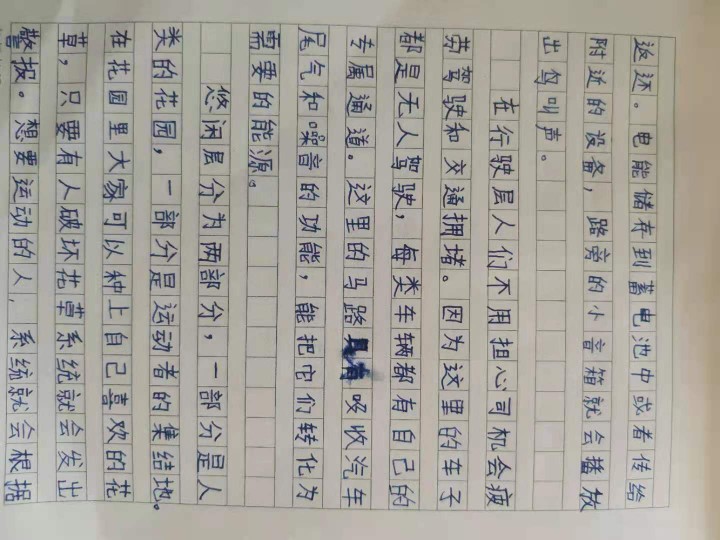 返还。电能储存到蓄电池中或者传给
附近的设备，路旁的小音箱就会播放
出鸟叫声。
在行驶层人们不用担心司机会疲
劳驾驶和交通拥堵。因为这里的车子
都是无人驾驶，每类车辆都有自己的
专属通道。这里的马路具有吸收汽车
尾气和噪音的功能，能把它们转化为
需要的能源。
悠闲层分为两部分，一部分是人
类的花园，一部分是运动者的集结地。
在花园里大家可以种上自己喜欢的花
草，只要有人破坏花草系统就会发出
警报。想要运动的人，系统就会根据